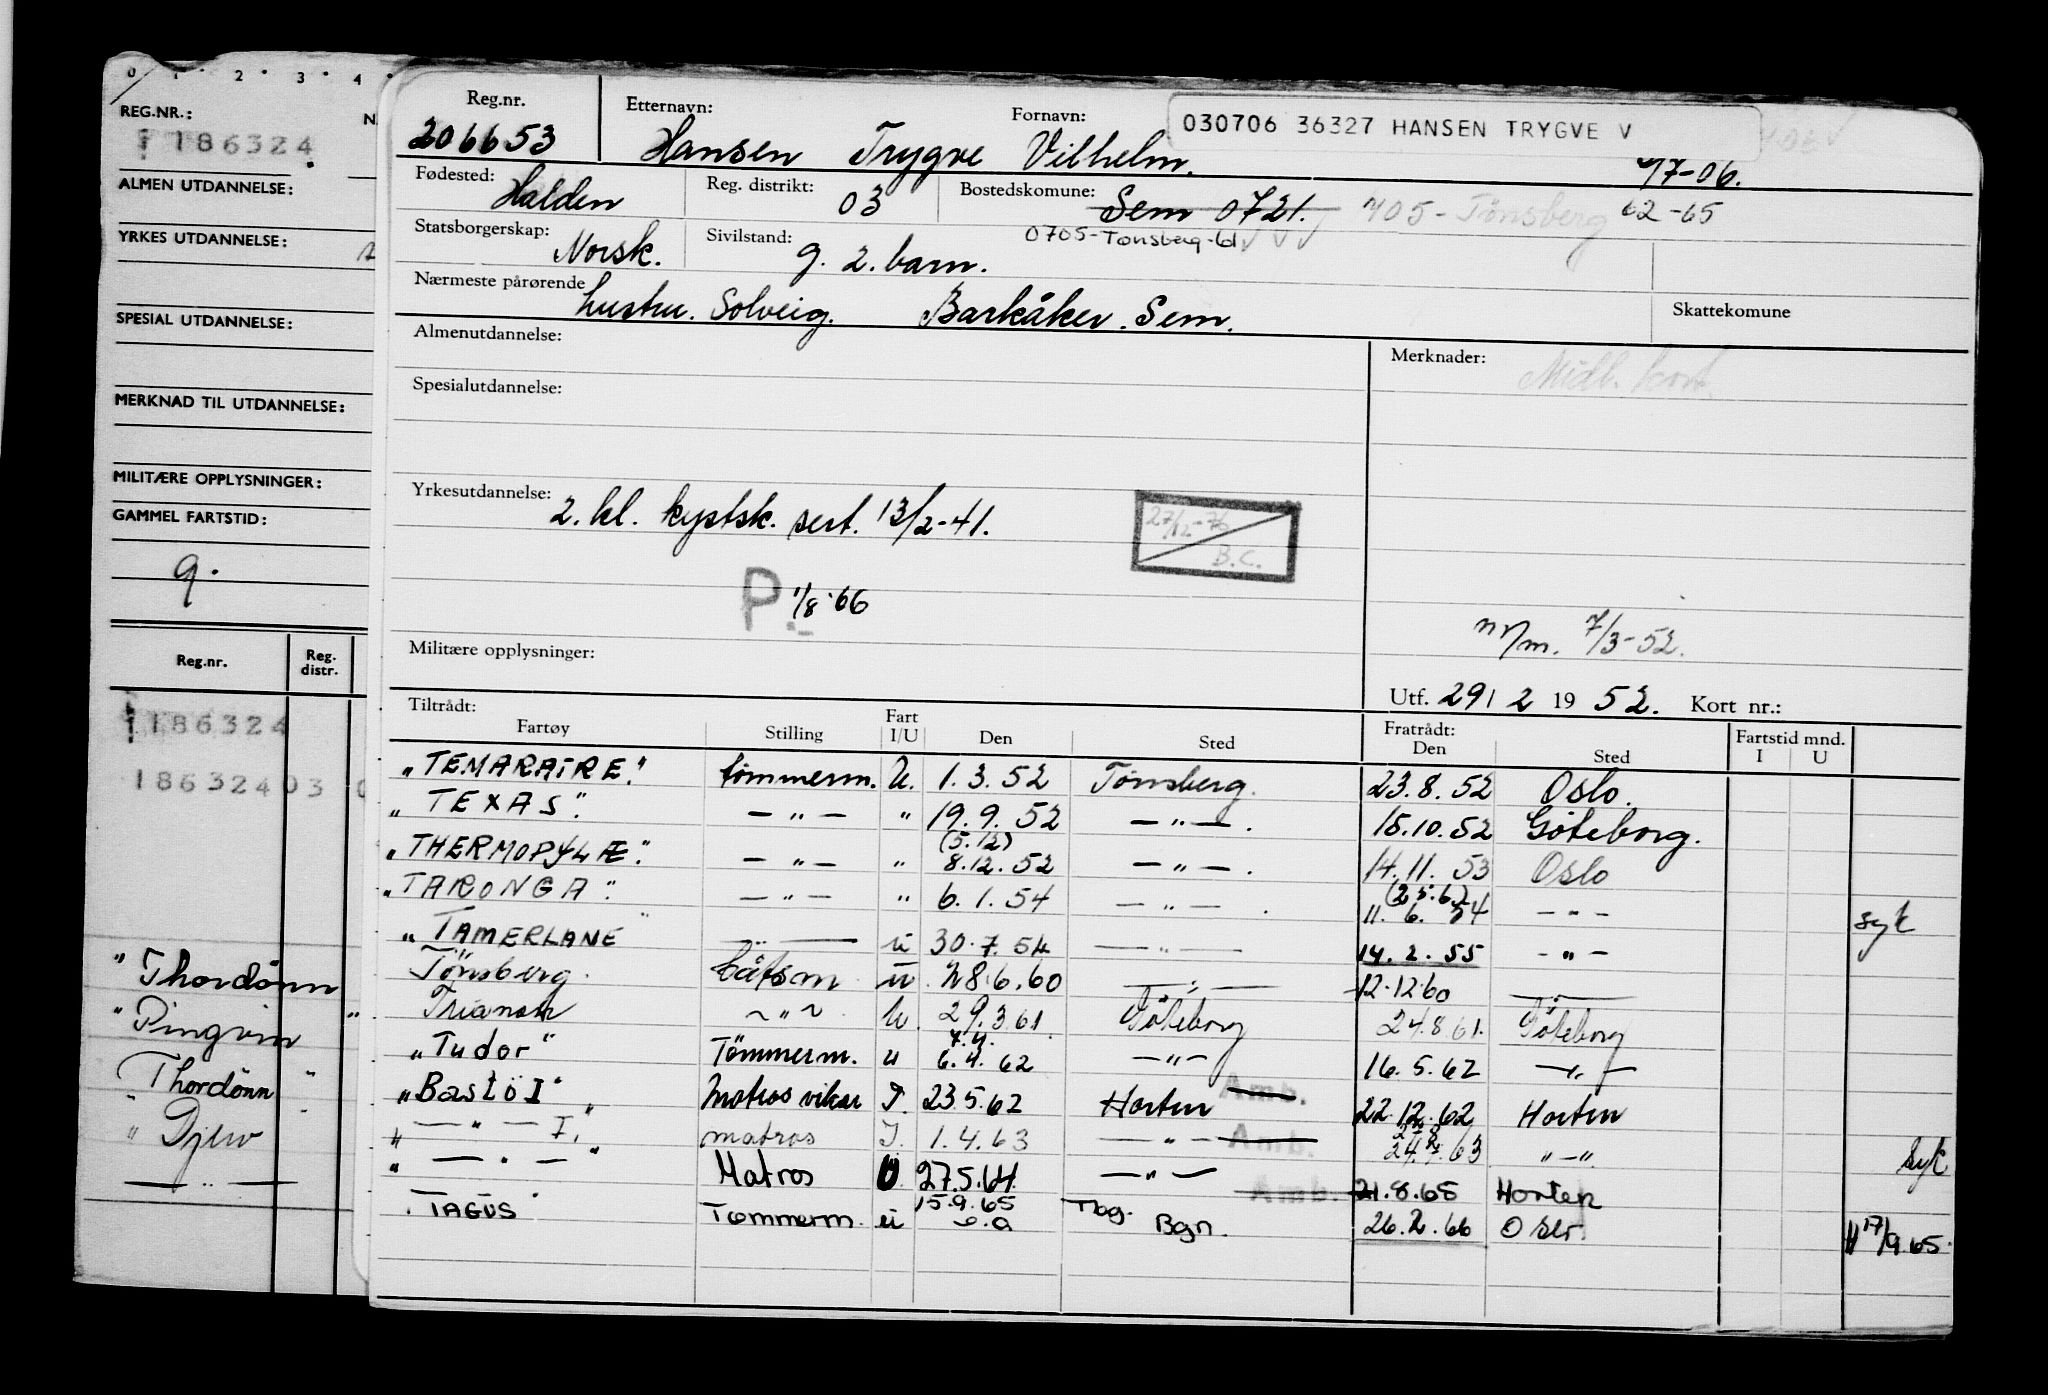 0 1 2 3 4
REG.NR.:
186324
ALMEN UTDANNELSE:
YRKES UTDANNELSE:
SPESIAL UTDANNELSE:
MERKNAD TIL UTDANNELSE:
MILITÆRE OPPLYSNINGER:
GAMMEL FARTSTID:
9.
Reg.nr. Reg. distr.
186324
18632403
"Thordönn
"Pingvin "
Thordönn "
" Djerv
— " —
Reg.nr. Etternavn: Fornavn: 030706 36327 HANSEN TRYGVE V
206653 Hansen Trygve Vilhelm. 3/7-06.
Fødested: Halden Reg. distrikt: 03 Bostedskomune: Sem 0721. 705-Tønsberg 62-65
Statsborgerskap: Norsk. Sivilstand: g. 2. barn. 0705-Tønsberg-61
Nærmeste pårørende hustru. Solveig. Barkåker. Sem. Skattekomune
Almenutdannelse: Merknader: Midl. kort.
Spesialutdannelse:
Yrkesutdannelse: 2. kl. kystsk. sert. 13/2-41. 27/12-76 B.C.
P. 1/8-66
m/m. 7/3-52.
Militære opplysninger:
Utf. 29/2 1952. Kort nr.:
Tiltrådt: Fratrådt: Fartstid mnd.
Fartøy Stilling Fart I/U Den Sted Den Sted I U
"TEMARAIRE." tømmerm. U. 1.3.52 Tønsberg. 23.8.52 Oslo.
"TEXAS". — " — " 19.9.52 — " —. 15.10.52 Göteborg.
"THERMOPYLÆ". — " — " (5.12) 8.12.52 — " —. 14.11.53 Oslo
"TARONGA". — " — " 6.1.54 — " —. (25.6) 11.6.54 — " — syk
"TAMERLANE" — " — u 30.7.54 — " — 14.2.55 — " —
Tønsberg. båtsm u. 28.6.60 — " — 12.12.60 — " —
Trianon ~ " ~ U. 29.3.61 Göteborg 24.8.61. Göteborg
"Tudor" Tömmerm. u 7.4. 6.4.62 — " — 16.5.62 — " —
"Bastö I" Matros vikar I. 23.5.62 Horten Amb. 22.12.62 Horten
" — " — I," matros I. 1.4.63 — " — Amb. 63 " — ". syk
" — " — " Matros 27.5.64. — " — Amb. 21.8.65 Horten
"TAGUS" Tømmerm. u 15.9.65 Tbg. Bgn. 26.2.66 Oslo. 17/9.65.